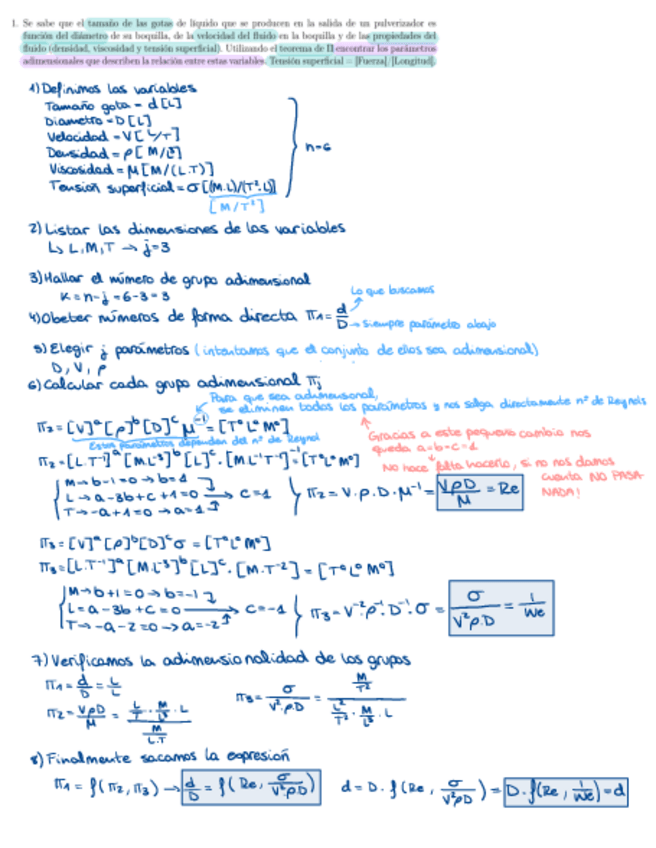 1. Se sabe que el tamaño de las gotas de líquido que se producen en la salida de un pulverizador es
función del diámetro de su boquilla, de la velocidad del fluido en la boquilla y de las propiedades del
fluido (densidad, viscosidad y tensión superficial). Utilizando el teorema de Π encontrar los parámetros
adimensionales que describen la relación entre estas variables. Tensión superficial = [Fuerza]/[Longitud].
1) Definimos las variables
Tamaño gota = d [L]
Diametro = D [L]
Velocidad = V [L/T]
Densidad = ρ [M/L³]
Viscosidad = μ [M/(L.T)]
Tension superficial = σ [(M.L)/(T².L)]
[M/T²]
n=6
2) Listar las dimensiones de las variables
↳ L, M, T → j=3
3) Hallar el número de grupo adimensional
K = n-j = 6-3 = 3
Lo que buscamos
4) Obeter números de forma directa π₁ = d/D → siempre parámetro abajo
5) Elegir j parámetros (intentamos que el conjunto de ellos sea adimensional)
D, V, ρ
6) Calcular cada grupo adimensional πj
Para que sea adimensional,
se eliminen todos los parámetros y nos salga directamente nº de Reynols
π₂ = [V]ᵃ [ρ]ᵇ [D]ᶜ μ⁻¹ = [T⁰ L⁰ M⁰]
Estos parámetros dependen del nº de Reynol
Gracias a este pequeño cambio nos
queda a=b=c=1
π₂ = [L.T⁻¹]ᵃ [M.L⁻³]ᵇ [L]ᶜ . [M.L⁻¹T⁻¹]⁻¹ = [T⁰ L⁰ M⁰]
No hace falta hacerlo, si no nos damos
cuenta NO PASA
NADA!
M → b-1=0 → b=1
L → a-3b+c+1=0 → c=1
T → -a+1=0 → a=1
π₂ = V.ρ.D.μ⁻¹ = VρD/μ = Re
π₃ = [V]ᵃ [ρ]ᵇ [D]ᶜ σ = [T⁰ L⁰ M⁰]
π₃ = [L.T⁻¹]ᵃ [M.L⁻³]ᵇ [L]ᶜ . [M.T⁻²] = [T⁰ L⁰ M⁰]
M → b+1=0 → b=-1
L = a-3b+c=0 → c=-1
T → -a-2=0 → a=-2
π₃ = V⁻².ρ⁻¹.D⁻¹.σ = σ/(V²ρ.D) = 1/We
7) Verificamos la adimensionalidad de los grupos
π₁ = d/D = L/L
π₂ = VρD/μ = (L/T . M/L³ . L)/(M/L.T)
π₃ = σ/(V².ρD) = (M/T²)/(L²/T² . M/L³ . L)
8) Finalmente sacamos la expresión
π₁ = f(π₂, π₃) → d/D = f(Re, σ/(V²ρD)) d = D. f(Re, σ/(V²ρD)) = D. f(Re, 1/We) = d